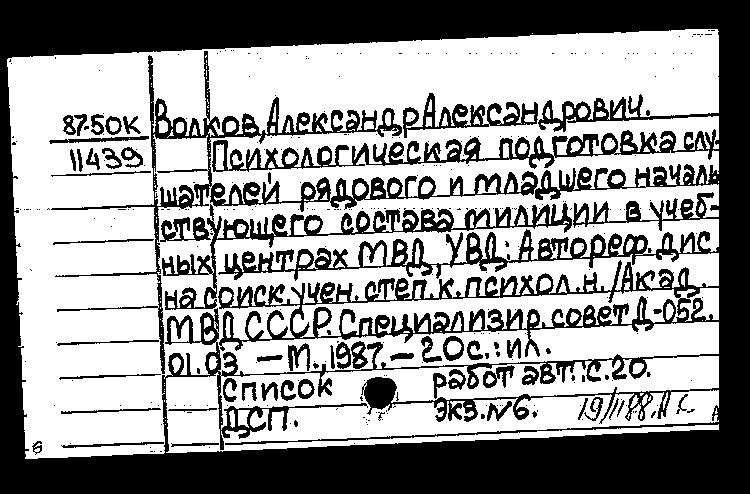 87-50К Волков, Александр Александрович.
11439 Психологическая подготовка слу-
шателей рядового и младшего началь
ствующего состава милиции в учеб-
ных центрах МВД, УВД: Автореф. дис.
на соиск. учен. степ. к. психол. н. /Акад.
МВД СССР. Специализир. совет Д-052.
01.03. — М., 1987. — 20с.: ил.
Список работ авт.: с. 20.
ДСП. Экз. № 6. 19/II 88.